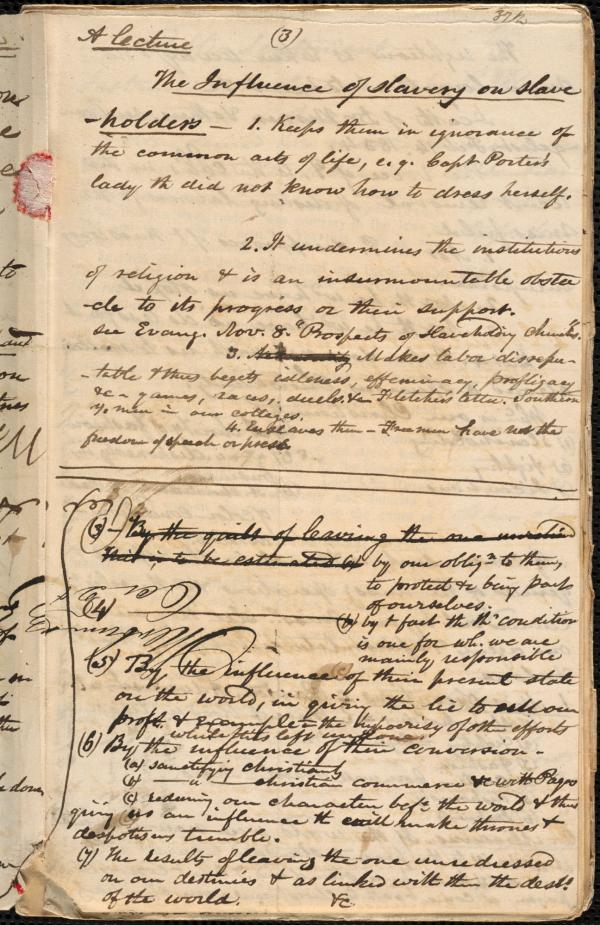 A lecture (3)
The Influence of slavery on slave
-holders - 1. Keeps them in ignorance of
the common acts of life, e.g. Capt Porter's
lady th did not know how to dress herself.
2. It undermines the institutions
of religion & is an insurmountable obsta
-cle to its progress or their support.
see Evang. Nov. 8. "Prospects of Slaveholding Churches".
3. Makes labor disrepu-
-table & thus begets idleness, effeminacy, profligacy
&c - games, races, duels, &c Fletcher's letter. Southern
y. men in our colleges.
4. Enslaves them - Freemen have not the
freedom of speech or press
(3) - By the guilt of leaving the one
that is to be estimated (a) by our obligⁿ to them,
to protect &c being part
of ourselves.
(4) (b) by t fact th ths condition
is one for wh. we are
mainly responsible
(5) By the influence of their present state
on the world, in giving the lie to all our
profⁿ & example the hypocrisy of other efforts
while this left undone
(6) By the influence of their conversion -
(a) sanctifying christians
(b) — " — christian commerce &c with Pagⁿ
(c) reducing our character befᵉ the world & thus
giving us an influence tt will make thrones &
despotisms tremble.
(7) The results of leaving the one unredressed
on our destinies & as linked with them the destˢ
of the world. &c